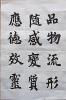 品物流形
隨感質
應德效靈